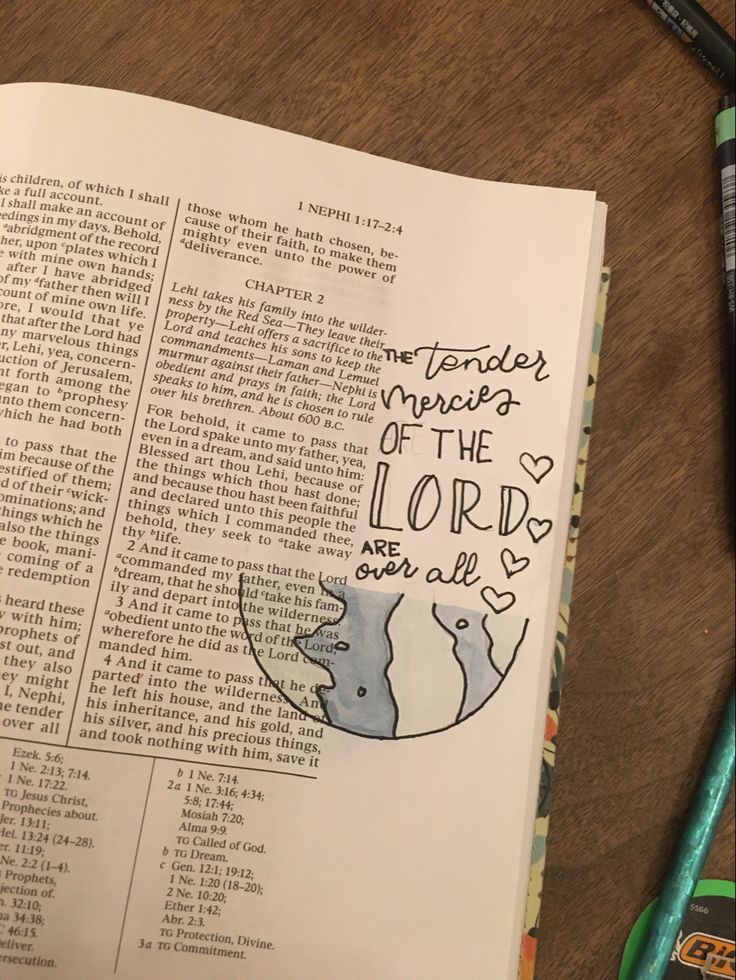 1 NEPHI 1:17–2:4
is children, of which I shall
ke a full account.
I shall make an account of
edings in my days. Behold,
abridgment of the record
her, upon cplates which I
e with mine own hands;
after I have abridged
of my afather then will I
count of mine own life.
ore, I would that ye
that after the Lord had
ny marvelous things
r, Lehi, yea, concern-
uction of Jerusalem,
nt forth among the
egan to bprophesy
unto them concern-
which he had both
to pass that the
im because of the
estified of them;
d of their awick-
ominations; and
things which he
also the things
e book, mani-
coming of a
e redemption
heard these
y with him;
prophets of
st out, and
they also
ey might
I, Nephi,
he tender
over all
those whom he hath chosen, be-
cause of their faith, to make them
mighty even unto the power of
ddeliverance.
CHAPTER 2
Lehi takes his family into the wilder-
ness by the Red Sea—They leave their
property—Lehi offers a sacrifice to the
Lord and teaches his sons to keep the
commandments—Laman and Lemuel
murmur against their father—Nephi is
obedient and prays in faith; the Lord
speaks to him, and he is chosen to rule
over his brethren. About 600 B.C.
FOR behold, it came to pass that
the Lord spake unto my father, yea,
even in a dream, and said unto him:
Blessed art thou Lehi, because of
the things which thou hast done;
and because thou hast been faithful
and declared unto this people the
things which I commanded thee,
behold, they seek to atake away
thy blife.
2 And it came to pass that the Lord
acommanded my father, even in a
bdream, that he should ctake his fam-
ily and depart into the wilderness.
3 And it came to pass that he was
aobedient unto the word of the Lord,
wherefore he did as the Lord com-
manded him.
4 And it came to pass that he de-
parted into the wilderness. And
he left his house, and the land of
his inheritance, and his gold, and
his silver, and his precious things,
and took nothing with him, save it
THE tender
mercies
OF THE
LORD
ARE
over all
Ezek. 5:6;
1 Ne. 2:13; 7:14.
1 Ne. 17:22.
TG Jesus Christ,
Prophecies about.
Jer. 13:11;
Hel. 13:24 (24–28).
er. 11:19;
Ne. 2:2 (1–4).
Prophets,
jection of.
n. 32:10;
a 34:38;
C 46:15.
eliver.
ersecution.
b 1 Ne. 7:14.
2a 1 Ne. 3:16; 4:34;
5:8; 17:44;
Mosiah 7:20;
Alma 9:9.
TG Called of God.
b TG Dream.
c Gen. 12:1; 19:12;
1 Ne. 1:20 (18–20);
2 Ne. 10:20;
Ether 1:42;
Abr. 2:3.
TG Protection, Divine.
3a TG Commitment.
5566
BIC